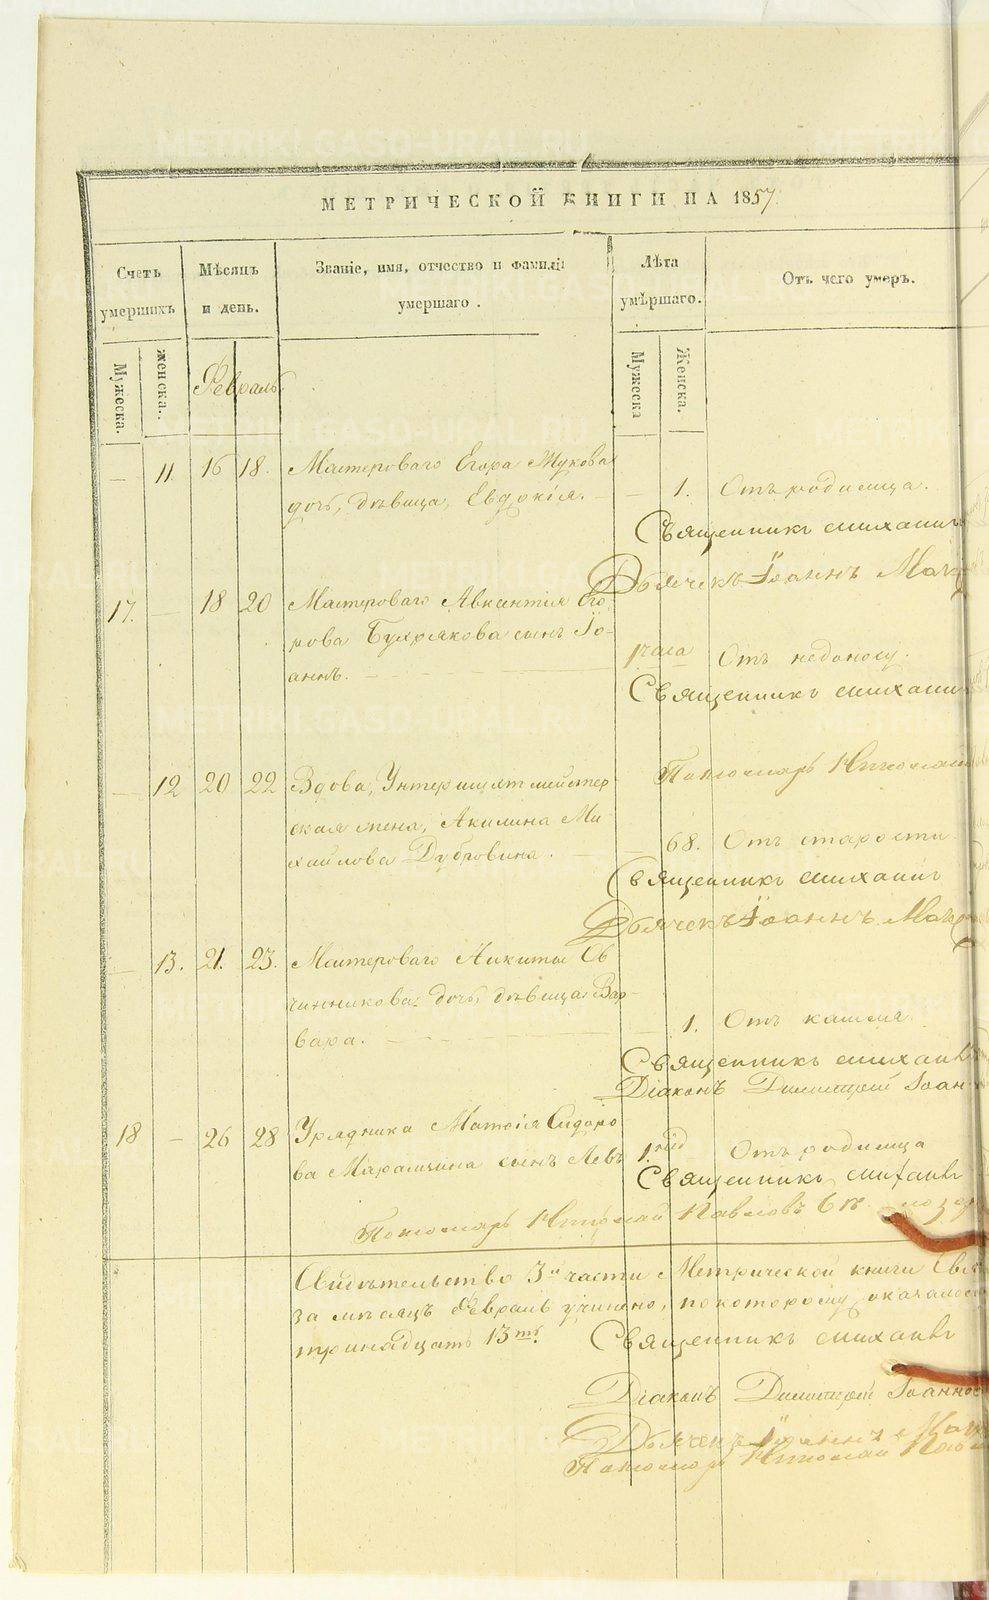 МЕТРИЧЕСКОЙ КНИГИ НА 1857.
Счетъ умершихъ
Мѣсяцъ и день.
Званіе, имя, отчество и фамилія умершаго.
Лѣта умѣршаго.
Отъ чего умеръ.
Мужеска.
женска.
Мужеска
Женска.
Февраль.
11. 16 18. Мастероваго Егора Жукова
дочь, дѣвица, Евдокія. 1. Отъ родимца.
Священникъ Михаилъ
Дьячекъ Іоаннъ
17. 18 20 Мастероваго Авксентія Его-
рова Бухрякова сынъ Іо-
аннъ. часа Отъ недоносу.
Священникъ Михаилъ
Пономарь Николай
12 20 22 Вдова, Унтершихтмейстер
ская жена, Акилина Ми
хайлова Дубровина. 68. Отъ старости
Священникъ Михаилъ
Дьячекъ Іоаннъ
13. 21. 23. Мастероваго Никиты Ов
чинникова дочь, дѣвица Вар-
вара. 1. Отъ кашля.
Священникъ Михаилъ
Діаконъ Димитрій Іоан
18 26 28 Урядника Матѳія Сидоро
ва сынъ Левъ Отъ родимца
Священникъ Михаилъ
Пономарь Николай Павловъ
Свидѣтельство 3й части Метрической книги
за мѣсяцъ Февраль учинено, по которому оказалось
тринадцать 13ть. Священникъ Михаилъ
Діаконъ Димитрій Іоанно
Дьячекъ Іоаннъ
Пономарь Николай